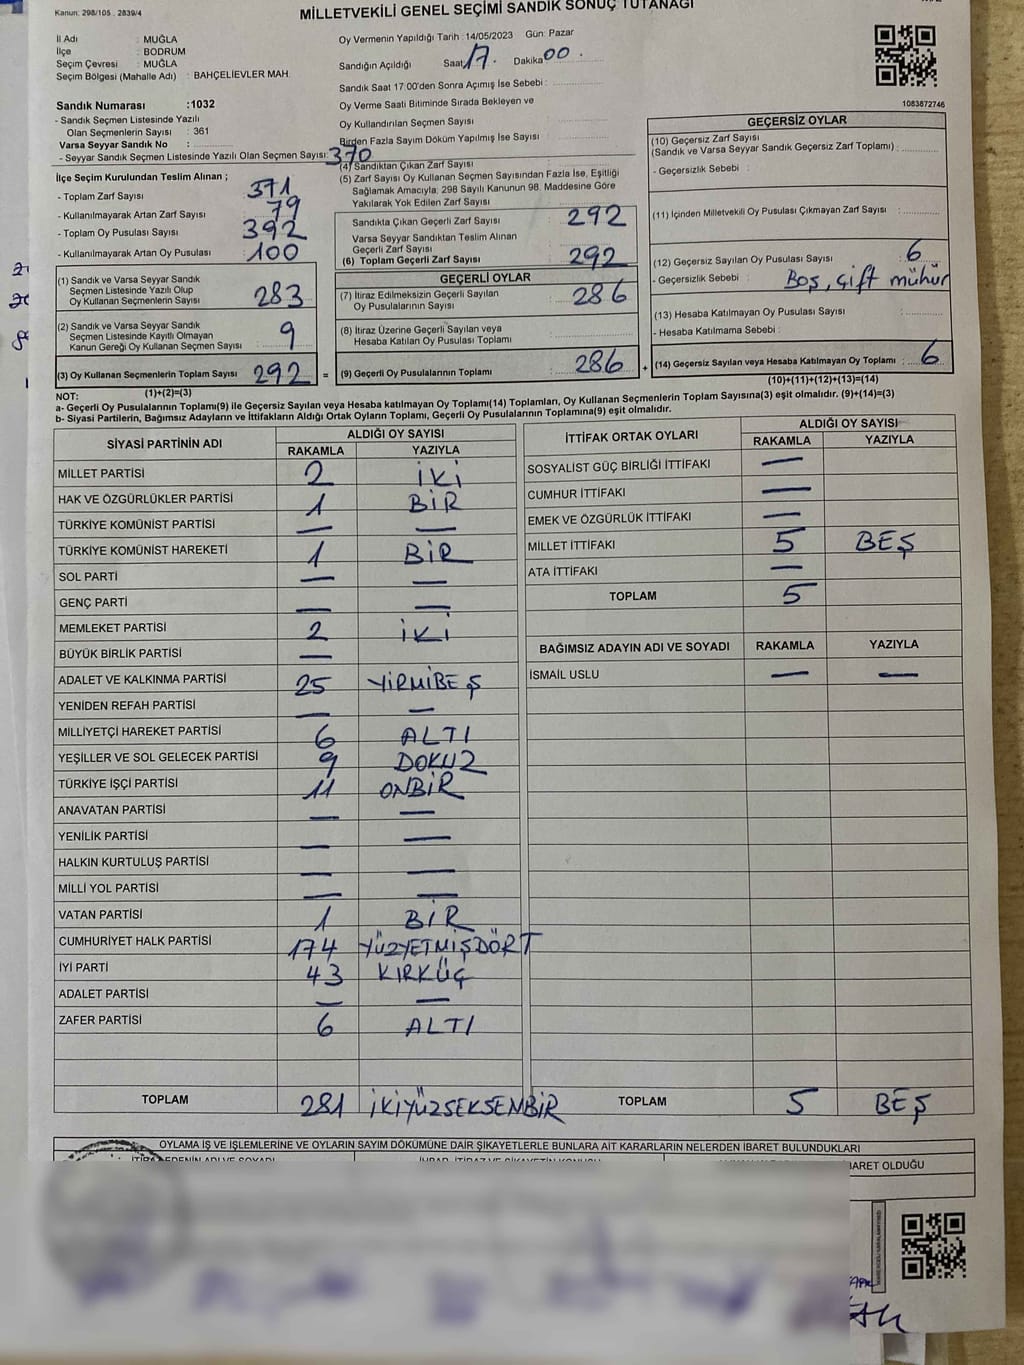 MİLLETVEKİLİ GENEL SEÇİMİ SANDIK SONUÇ TUTANAĞI
Kanun: 298/105 , 2839/4
İl Adı : MUĞLA
İlçe : BODRUM
Seçim Çevresi : MUĞLA
Seçim Bölgesi (Mahalle Adı) : BAHÇELİEVLER MAH.
Sandık Numarası :1032
- Sandık Seçmen Listesinde Yazılı
Olan Seçmenlerin Sayısı : 361
Varsa Seyyar Sandık No :
- Seyyar Sandık Seçmen Listesinde Yazılı Olan Seçmen Sayısı:
Oy Vermenin Yapıldığı Tarih : 14/05/2023 Gün: Pazar
Sandığın Açıldığı Saat 17. Dakika 00
Sandık Saat 17:00'den Sonra Açımış İse Sebebi :
Oy Verme Saati Bitiminde Sırada Bekleyen ve
Oy Kullandırılan Seçmen Sayısı :
Birden Fazla Sayım Döküm Yapılmış İse Sayısı :
370
(4) Sandıktan Çıkan Zarf Sayısı
(5) Zarf Sayısı Oy Kullanan Seçmen Sayısından Fazla İse, Eşitliği
Sağlamak Amacıyla; 298 Sayılı Kanunun 98. Maddesine Göre
Yakılarak Yok Edilen Zarf Sayısı
1083872746
İlçe Seçim Kurulundan Teslim Alınan ;
- Toplam Zarf Sayısı 371
- Kullanılmayarak Artan Zarf Sayısı 79
- Toplam Oy Pusulası Sayısı 392
- Kullanılmayarak Artan Oy Pusulası : 100
(1) Sandık ve Varsa Seyyar Sandık
Seçmen Listesinde Yazılı Olup
Oy Kullanan Seçmenlerin Sayısı 283
(2) Sandık ve Varsa Seyyar Sandık
Seçmen Listesinde Kayıtlı Olmayan
Kanun Gereği Oy Kullanan Seçmen Sayısı 9
(3) Oy Kullanan Seçmenlerin Toplam Sayısı 292 =
(1)+(2)=(3)
Sandıkta Çıkan Geçerli Zarf Sayısı : 292
Varsa Seyyar Sandıktan Teslim Alınan
Geçerli Zarf Sayısı
(6) Toplam Geçerli Zarf Sayısı 292
GEÇERLİ OYLAR
(7) İtiraz Edilmeksizin Geçerli Sayılan
Oy Pusulasının Sayısı : 286
(8) İtiraz Üzerine Geçerli Sayılan veya
Hesaba Katılan Oy Pusulası Toplamı
(9) Geçerli Oy Pusulalarının Toplamı 286 +
GEÇERSİZ OYLAR
(10) Geçersiz Zarf Sayısı
(Sandık ve Varsa Seyyar Sandık Geçersiz Zarf Toplamı) :
- Geçersizlik Sebebi :
(11) İçinden Milletvekili Oy Pusulası Çıkmayan Zarf Sayısı :
(12) Geçersiz Sayılan Oy Pusulası Sayısı : 6
- Geçersizlik Sebebi : Boş, çift mühür
(13) Hesaba Katılmayan Oy Pusulası Sayısı :
- Hesaba Katılmama Sebebi :
(14) Geçersiz Sayılan veya Hesaba Katılmayan Oy Toplamı : 6
(10)+(11)+(12)+(13)=(14)
NOT:
a- Geçerli Oy Pusulalarının Toplamı(9) ile Geçersiz Sayılan veya Hesaba Katılmayan oy Toplamı(14) Toplamları, Oy Kullanan Seçmenlerin Toplam Sayısına(3) eşit olmalıdır. (9)+(14)=(3)
b- Siyasi Partilerin, Bağımsız Adayların ve İttifakların Aldığı Ortak Oyların Toplamı, Geçerli Oy Pusulalarının Toplamına(9) eşit olmalıdır.
SİYASİ PARTİNİN ADI ALDIĞI OY SAYISI
RAKAMLA YAZIYLA
MİLLET PARTİSİ 2 İKİ
HAK VE ÖZGÜRLÜKLER PARTİSİ 1 BİR
TÜRKİYE KOMÜNİST PARTİSİ — —
TÜRKİYE KOMÜNİST HAREKETİ 1 BİR
SOL PARTİ — —
GENÇ PARTİ — —
MEMLEKET PARTİSİ 2 İKİ
BÜYÜK BİRLİK PARTİSİ —
ADALET VE KALKINMA PARTİSİ 25 YİRMİBEŞ
YENİDEN REFAH PARTİSİ — —
MİLLİYETÇİ HAREKET PARTİSİ 6 ALTI
YEŞİLLER VE SOL GELECEK PARTİSİ 9 DOKUZ
TÜRKİYE İŞÇİ PARTİSİ 11 ONBİR
ANAVATAN PARTİSİ — —
YENİLİK PARTİSİ — —
HALKIN KURTULUŞ PARTİSİ — —
MİLLİ YOL PARTİSİ — —
VATAN PARTİSİ 1 BİR
CUMHURİYET HALK PARTİSİ 174 YÜZYETMİŞDÖRT
İYİ PARTİ 43 KIRKÜÇ
ADALET PARTİSİ — —
ZAFER PARTİSİ 6 ALTI
TOPLAM 281 İKİYÜZSEKSENBİR
İTTİFAK ORTAK OYLARI ALDIĞI OY SAYISI
RAKAMLA YAZIYLA
SOSYALIST GÜÇ BİRLİĞİ İTTİFAKI —
CUMHUR İTTİFAKI —
EMEK VE ÖZGÜRLÜK İTTİFAKI —
MİLLET İTTİFAKI 5 BEŞ
ATA İTTİFAKI —
TOPLAM 5
BAĞIMSIZ ADAYIN ADI VE SOYADI RAKAMLA YAZIYLA
İSMAİL USLU — —
TOPLAM 5 BEŞ
OYLAMA İŞ VE İŞLEMLERİNE VE OYLARIN SAYIM DÖKÜMÜNE DAİR ŞİKAYETLERLE BUNLARA AİT KARARLARIN NELERDEN İBARET BULUNDUKLARI
İBARET OLDUĞU